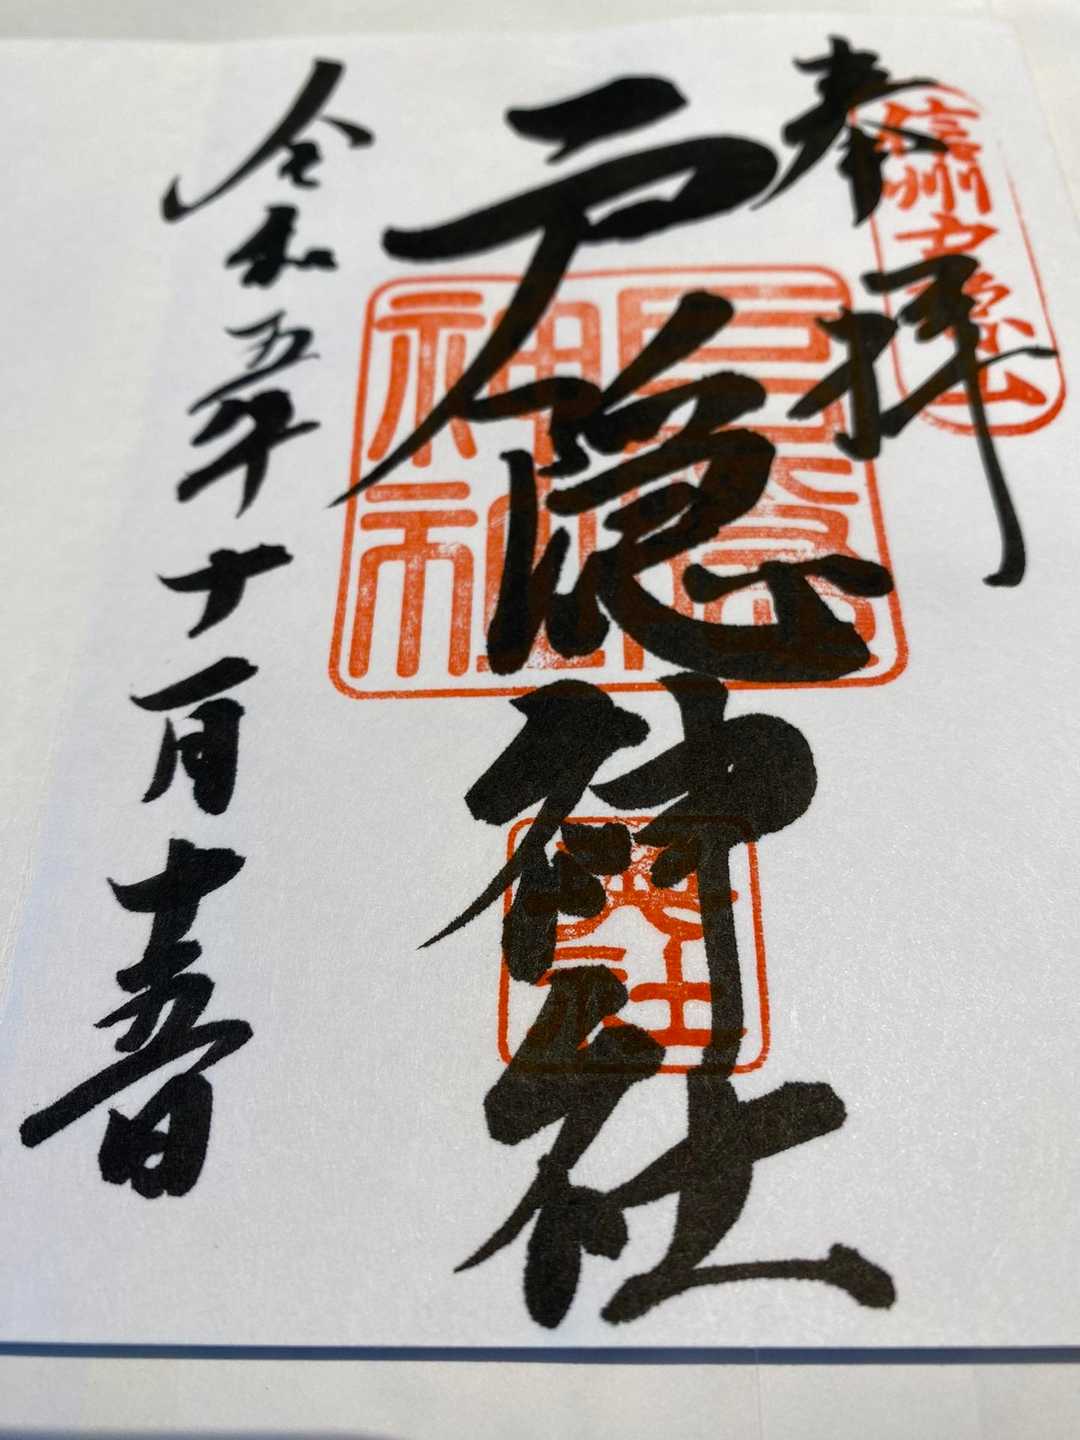 奉拝
信州戸隠山
戸隠神社
戸隠神社
奥社
令和五年十一月十五日